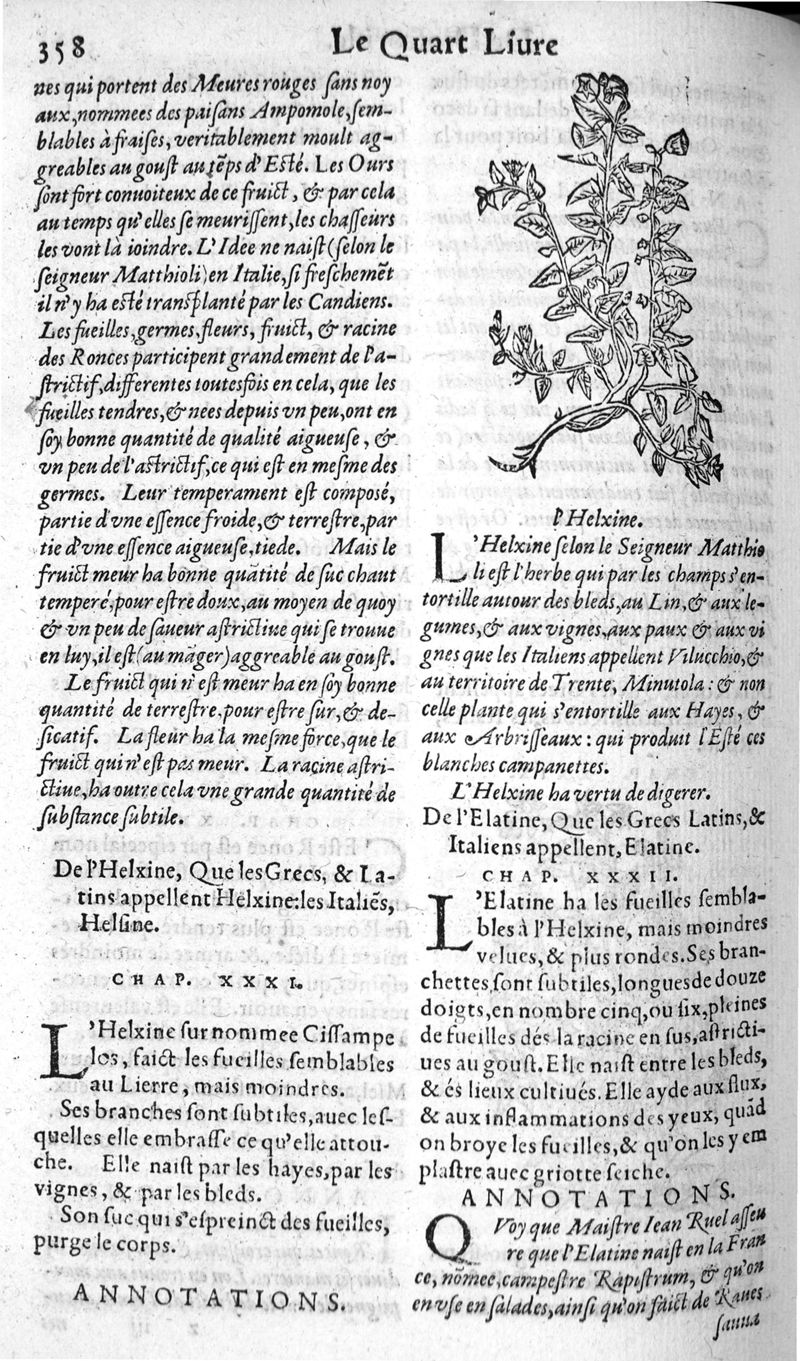 358
Le Quart Liure
nes qui portent des Meures rouges ſans noy
aux, nommees des païſans Ampomole, ſem-
blables à fraiſes, veritablement moult ag-
greables au gouſt au tẽps d'Eſté. Les Ours
ſont fort conuoiteux de ce fruict, & par cela
au temps qu'elles ſe meuriſſent, les chaſſeurs
les vont là ioindre. L'Idee ne naiſt (ſelon le
ſeigneur Matthioli) en Italie, ſi freſchemẽt
il n'y ha eſté tranſplanté par les Candiens.
Les fueilles, germes, fleurs, fruict, & racine
des Ronces participent grandement de l'a-
ſtrictif, differentes toutesfois en cela, que les
fueilles tendres, & nees depuis vn peu, ont en
ſoy bonne quantité de qualité aigueuſe, &
vn peu de l'aſtrictif, ce qui eſt en meſme des
germes. Leur temperament eſt compoſé,
partie d'vne eſſence froide, & terreſtre, par
tie d'vne eſſence aigueuſe, tiede. Mais le
fruict meur ha bonne quãtité de ſuc chaut
temperé, pour eſtre doux, au moyen de quoy
& vn peu de ſaueur aſtrictiue qui ſe trouue
en luy, il eſt (au mãger) aggreable au gouſt.
Le fruict qui n'eſt meur ha en ſoy bonne
quantité de terreſtre, pour eſtre ſur, & de-
ſicatif. La fleur ha la meſme force, que le
fruict qui n'eſt pas meur. La racine aſtri-
ctiue, ha outre cela vne grande quantité de
ſubſtance ſubtile.
De l'Helxine, Que les Grecs, & La-
tins appellent Helxine: les Italiẽs,
Helſine.
CHAP. XXXI.
L'Helxine ſurnommee Ciſſampe
los, faict les fueilles ſemblables
au Lierre, mais moindres.
Ses branches ſont ſubtiles, auec leſ-
quelles elle embraſſe ce qu'elle attou-
che. Elle naiſt par les hayes, par les
vignes, & par les bleds.
Son ſuc qui s'eſpreinct des fueilles,
purge le corps.
ANNOTATIONS.
l'Helxine.
L'Helxine ſelon le Seigneur Matthio
li eſt l'herbe qui par les champs s'en-
tortille autour des bleds, au Lin, & aux le-
gumes, & aux vignes, aux paux & aux vi
gnes que les Italiens appellent Vilucchio, &
au territoire de Trente, Minutola: & non
celle plante qui s'entortille aux Hayes, &
aux Arbriſſeaux: qui produit l'Eſté ces
blanches campanettes.
L'Helxine ha vertu de digerer.
De l'Elatine, Que les Grecs Latins, &
Italiens appellent, Elatine.
CHAP. XXXII.
L'Elatine ha les fueilles ſembla-
bles à l'Helxine, mais moindres
velues, & plus rondes. Ses bran-
chettes ſont ſubtiles, longues de douze
doigts, en nombre cinq, ou ſix, pleines
de fueilles dés la racine en ſus, aſtricti-
ues au gouſt. Elle naiſt entre les bleds,
& és lieux cultiués. Elle ayde aux flux,
& aux inflammations des yeux, quãd
on broye les fueilles, & qu'on les y em
plaſtre auec griotte ſeiche.
ANNOTATIONS.
QVoy que Maiſtre Iean Ruel aſſeu
re que l'Elatine naiſt en la Fran
ce, nõmee, campeſtre Rapiſtrum, & qu'on
en vſe en ſalades, ainſi qu'on faict de Raues
ſauua